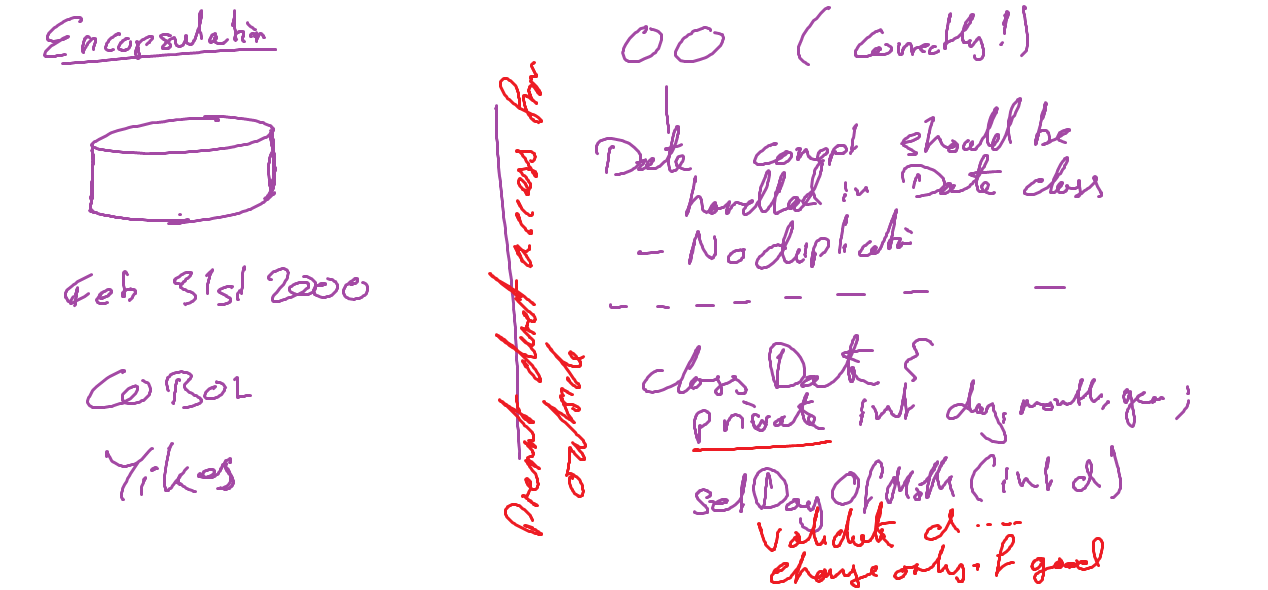 Encapsulation
Feb 31st 2000
COBOL
Yikes
Prevent direct access from
outside
OO (Correctly!)
Date concept should be
handled in Date class
- No duplication
class Date {
private int day, month, year;
setDayOfMonth(int d)
validate d ....
change only if good